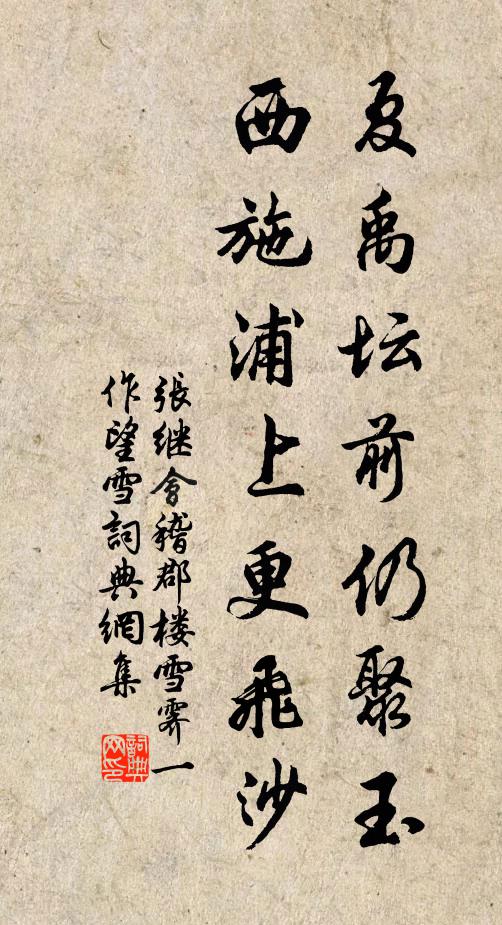 夏禹坛前仍聚玉
西施浦上更飛沙
張继會稽郡楼雪霽一
作望雪詞典網集
詞典
网印